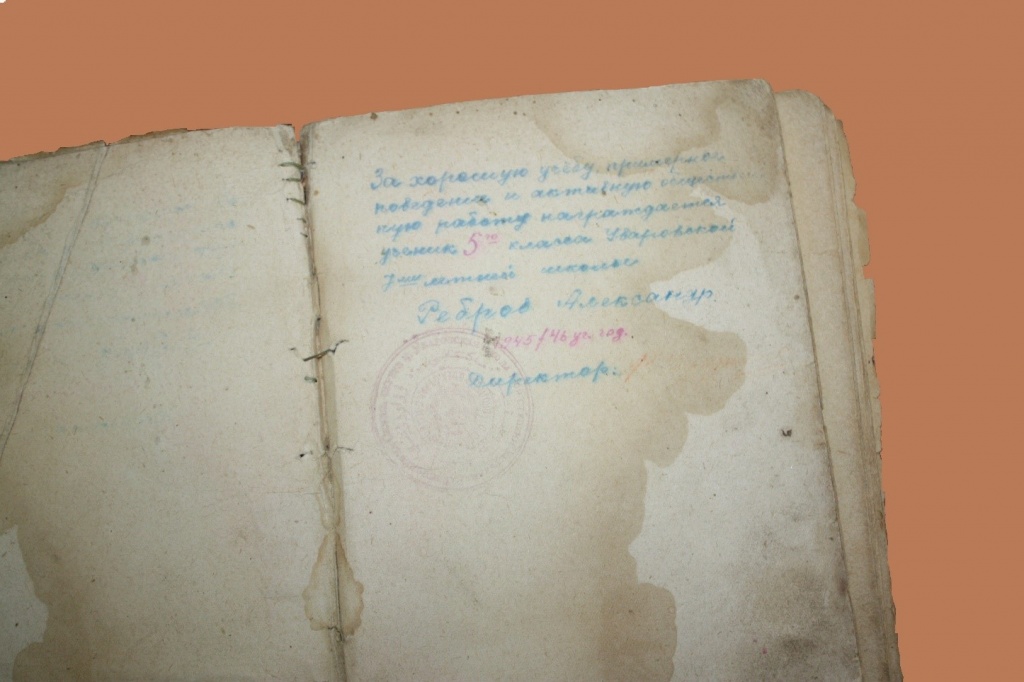 За хорошую учёбу, примерное
поведение и активную обществен
ную работу награждается
ученик 5го класса Уваровской
7ми летней школы
Ребров Александр.
1945/46 уч. год.
Директор: